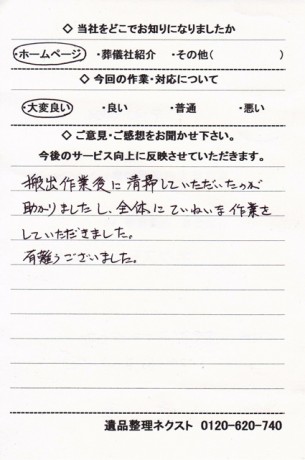 ◇ 当社をどこでお知りになりましたか
・ホームページ ・葬儀社紹介 ・その他( )
◇ 今回の作業・対応について
・大変良い ・良い ・普通 ・悪い
◇ ご意見・ご感想をお聞かせ下さい。
今後のサービス向上に反映させていただきます。
搬出作業後に清掃していただいたのが
助かりましたし、全体にていねいな作業を
していただきました。
有難うございました。
遺品整理ネクスト 0120-620-740